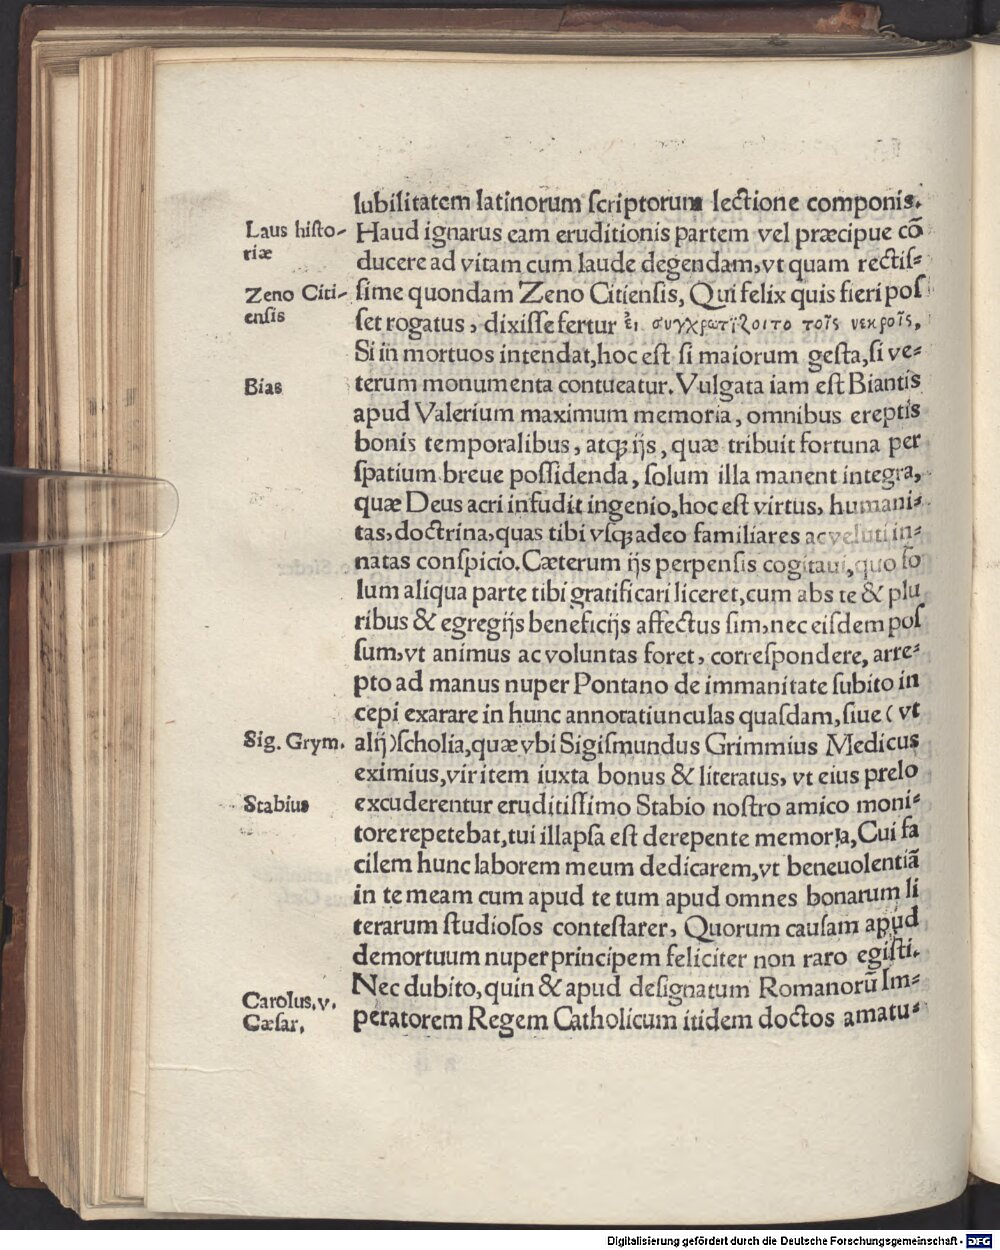 lubilitatem latinorum ſcriptorum lectione componis.
Laus hiſto-
riæ
Haud ignarus eam eruditionis partem vel præcipue cõ
ducere ad vitam cum laude degendam, vt quam rectiſ-
Zeno Citi-
enſis
ſime quondam Zeno Citienſis, Qui felix quis fieri poſ
ſet rogatus, dixiſſe fertur ἐι συγχρωτίζοιτο τοῖς νεκροῖς,
Si in mortuos intendat, hoc eſt ſi maiorum geſta, ſi ve-
Bias
terum monumenta contueatur. Vulgata iam eſt Biantis
apud Valerium maximum memoria, omnibus ereptis
bonis temporalibus, atqꝫ ijs, quæ tribuit fortuna per
ſpatium breue poſſidenda, ſolum illa manent integra,
quæ Deus acri infudit ingenio, hoc eſt virtus, humani-
tas, doctrina, quas tibi vſqꝫ adeo familiares ac veluti in-
natas conſpicio. Cæterum ijs perpenſis cogitaui, quo ſo
lum aliqua parte tibi gratificari liceret, cum abs te & plu
ribus & egregijs beneficijs affectus ſim, nec eiſdem poſ
ſum, vt animus ac voluntas foret, correſpondere, arre-
pto ad manus nuper Pontano de immanitate ſubito in
cepi exarare in hunc annotatiunculas quaſdam, ſiue ( vt
Sig. Grym.
alij ) ſcholia, quæ vbi Sigiſmundus Grimmius Medicus
eximius, vir item iuxta bonus & literatus, vt eius prelo
Stabius
excuderentur eruditiſſimo Stabio noſtro amico moni-
tore repetebat, tui illapſa eſt derepente memoria, Cui fa
cilem hunc laborem meum dedicarem, vt beneuolentiã
in te meam cum apud te tum apud omnes bonarum li
terarum ſtudioſos conteſtarer, Quorum cauſam apud
demortuum nuper principem feliciter non raro egiſti.
Nec dubito, quin & apud deſignatum Romanorũ Im-
Carolus. v.
Cæſar.
peratorem Regem Catholicum itidem doctos amatu-
Digitalisierung gefördert durch die Deutsche Forschungsgemeinschaft - DFG